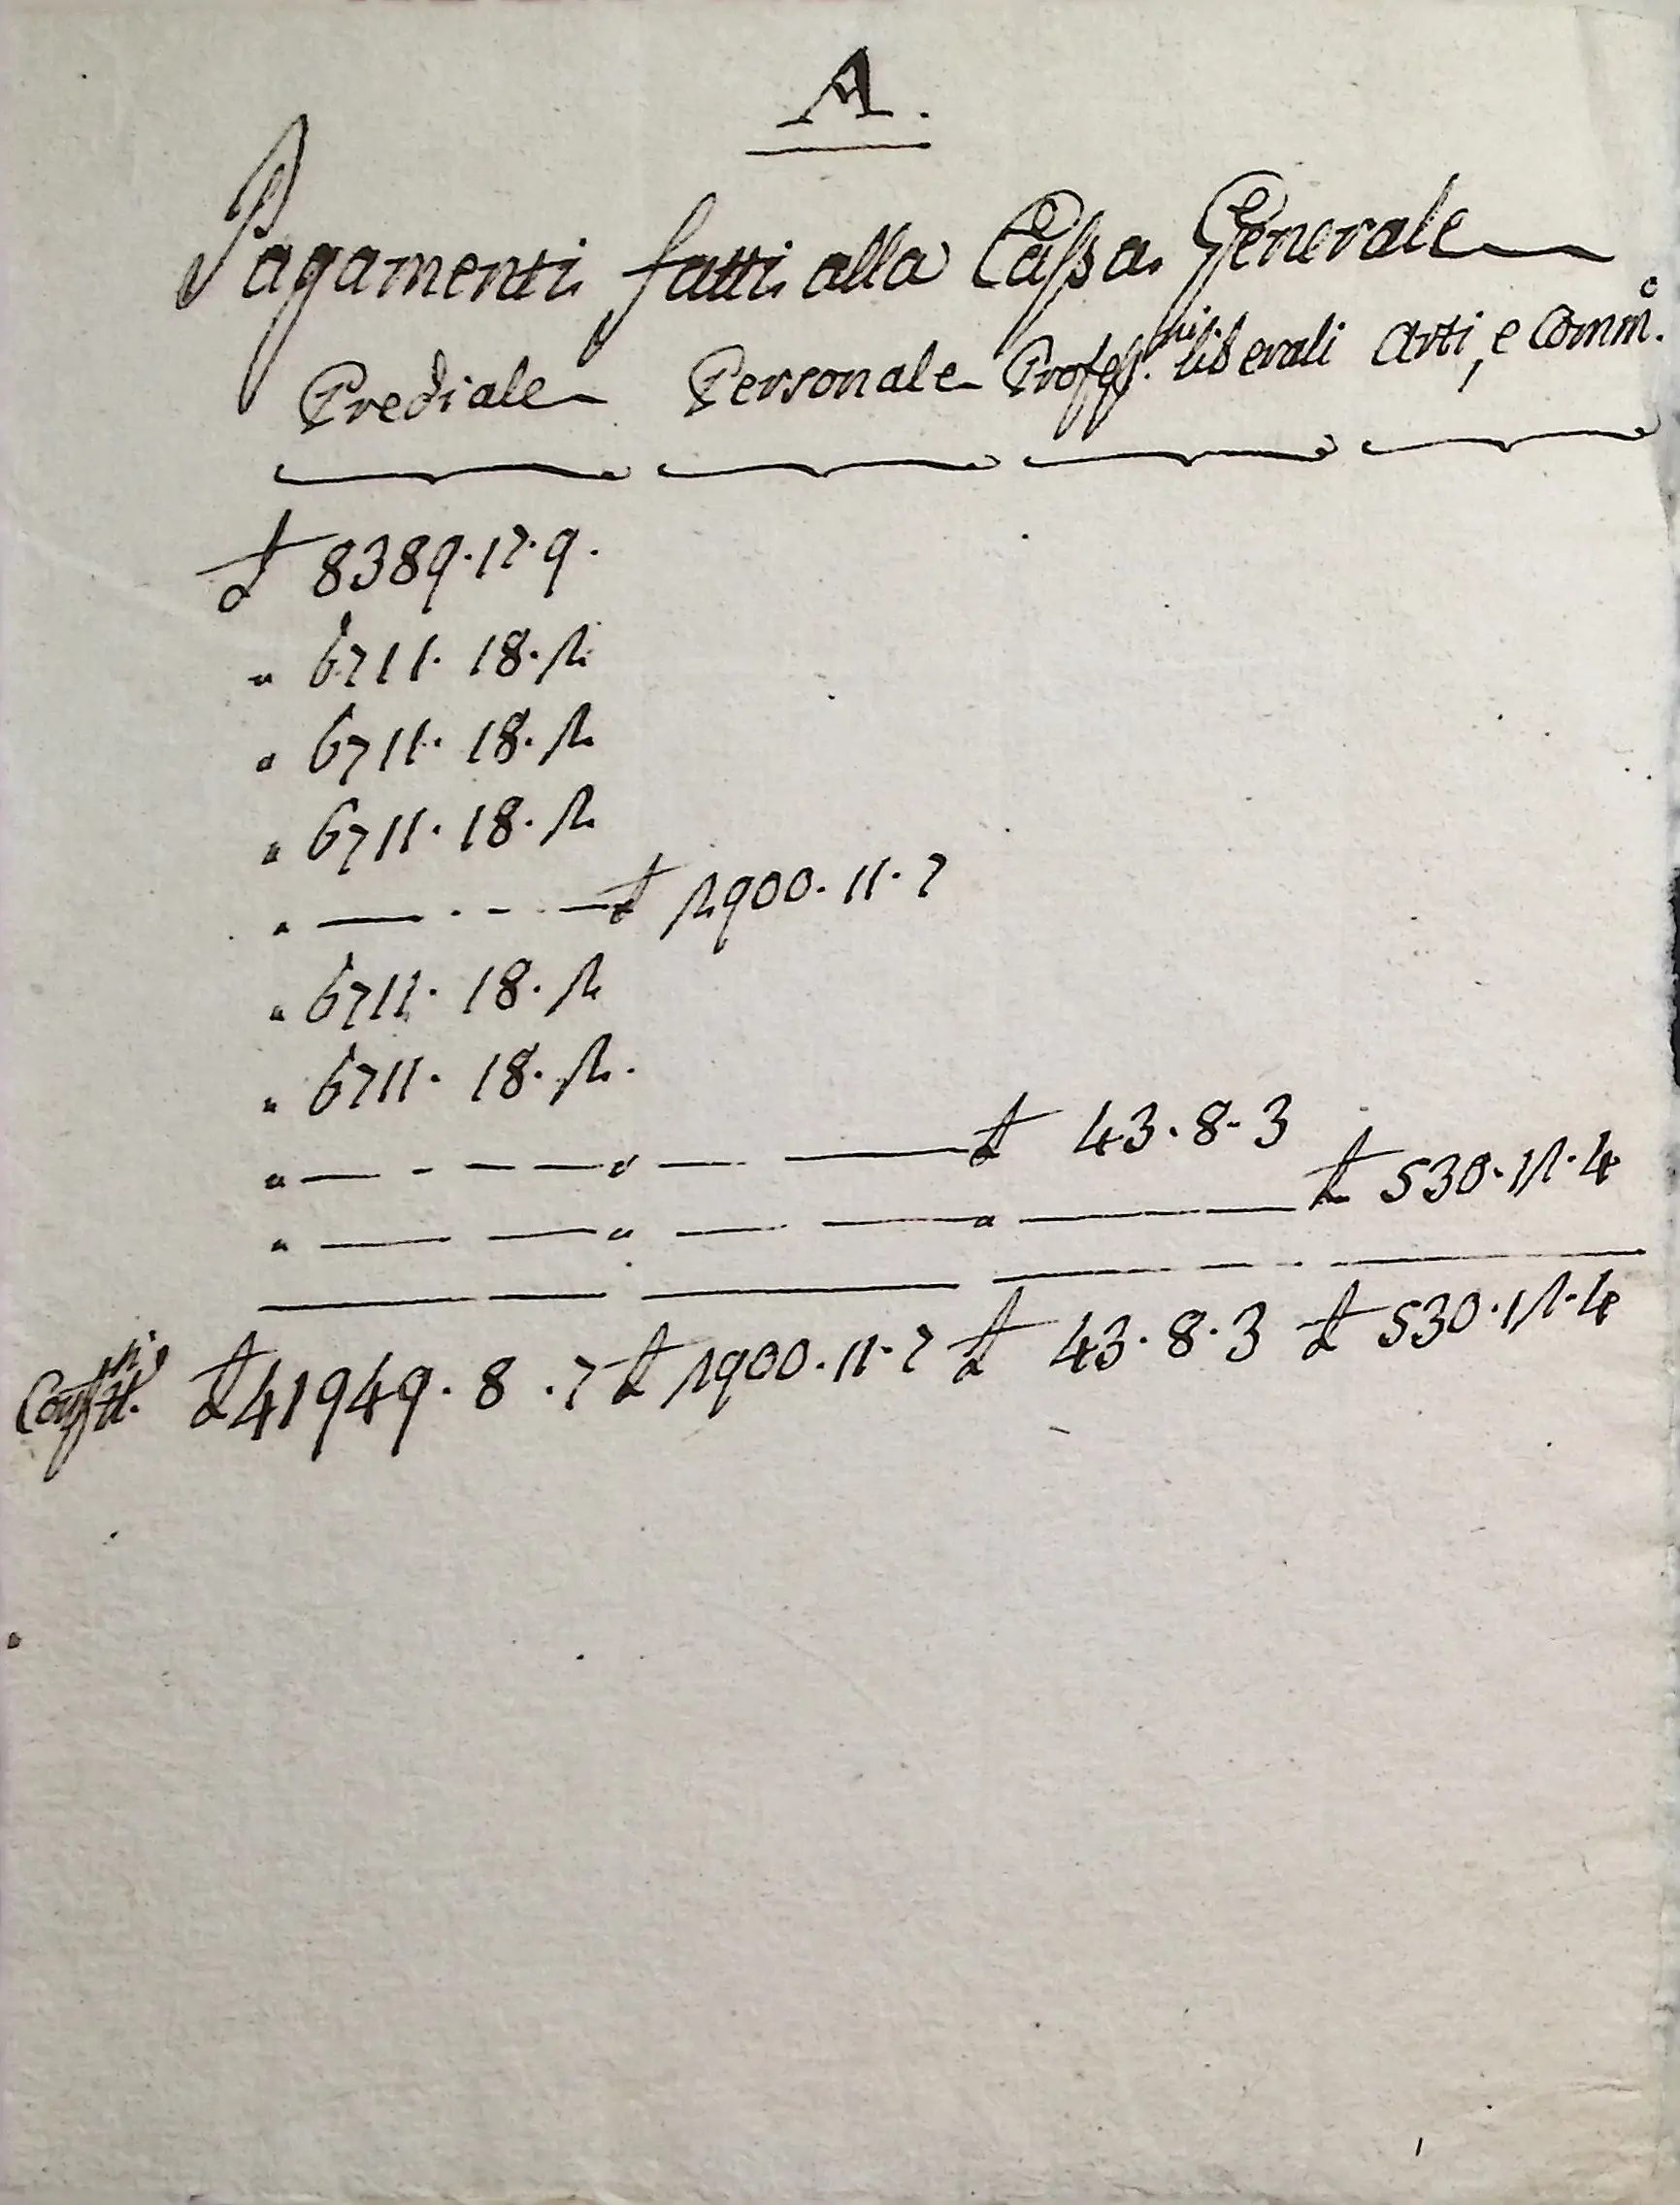 A.
Pagamenti fatti alla Cassa Generale
Prediale Personale Profess.ni liberali Arti, e Comm.o
£ 8389.17.9.
" 6711. 18. 2
" 6711. 18. 2
" 6711. 18. 2
" — . - . — £ 2900. 11. 7
" 6711. 18. 2
" 6711. 18. 2.
" — - — — " — — £ 43. 8. 3
" — — " — — " — — £ 530. 12. 4
£ 41949. 8. 7 £ 2900. 11. 7 £ 43. 8. 3 £ 530. 12. 4